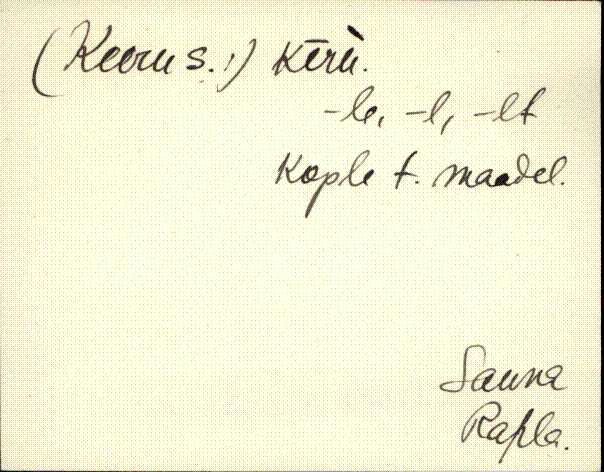 (Keeru s.:) Kērù.
-le, -l, -lt
Kople t. maadel.
Sauna
Rapla.